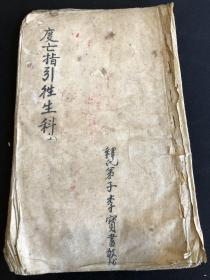 度亡指引牲生科
釋氏弟子李寶書